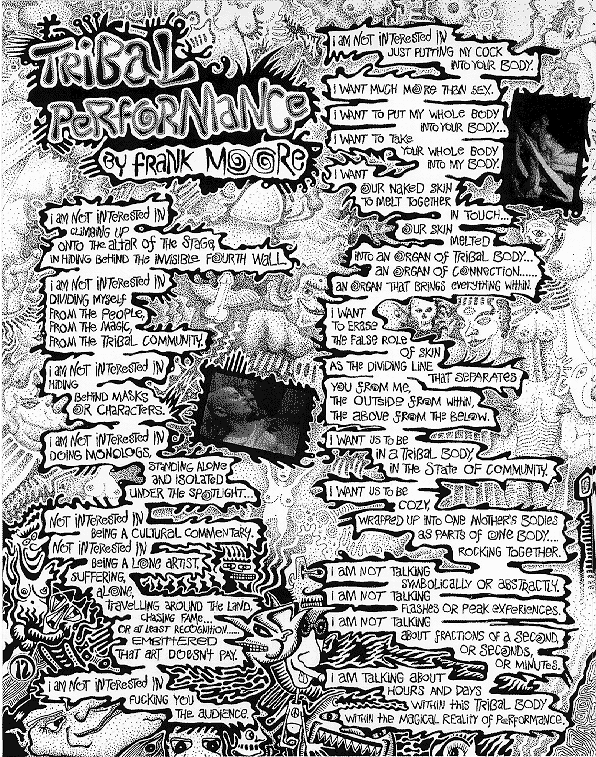 TRIBAL
PERFORMANCE
BY FRANK MOORE
I AM NOT INTERESTED IN
CLIMBING UP
ONTO THE ALTAR OF THE STAGE,
IN HIDING BEHIND THE INVISIBLE FOURTH WALL.
I AM NOT INTERESTED IN
DIVIDING MYSELF
FROM THE PEOPLE,
FROM THE MAGIC,
FROM THE TRIBAL COMMUNITY.
I AM NOT INTERESTED IN
HIDING
BEHIND MASKS
OR CHARACTERS.
I AM NOT INTERESTED IN
DOING MONOLOGS,
STANDING ALONE
AND ISOLATED
UNDER THE SPOTLIGHT...
NOT INTERESTED IN
BEING A CULTURAL COMMENTARY.
NOT INTERESTED IN
BEING A LONE ARTIST,
SUFFERING,
ALONE,
TRAVELLING AROUND THE LAND,
CHASING FAME...
OR AT LEAST RECOGNITION.....
EMBITTERED
THAT ART DOESN'T PAY.
I AM NOT INTERESTED IN
FUCKING YOU
THE AUDIENCE.
I AM NOT INTERESTED IN
JUST PUTTING MY COCK
INTO YOUR BODY.
I WANT MUCH MORE THAN SEX.
I WANT TO PUT MY WHOLE BODY
INTO YOUR BODY...
I WANT TO TAKE
YOUR WHOLE BODY
INTO MY BODY.
I WANT
OUR NAKED SKIN
TO MELT TOGETHER
IN TOUCH...
OUR SKIN
MELTED
INTO AN ORGAN OF TRIBAL BODY...
AN ORGAN OF CONNECTION......
AN ORGAN THAT BRINGS EVERYTHING WITHIN.
I WANT
TO ERASE
THE FALSE ROLE
OF SKIN
AS THE DIVIDING LINE
THAT SEPARATES
YOU FROM ME,
THE OUTSIDE FROM WITHIN,
THE ABOVE FROM THE BELOW.
I WANT US TO BE
IN A TRIBAL BODY,
IN THE STATE OF COMMUNITY.
I WANT US TO BE
COZY,
WRAPPED UP INTO ONE MOTHER'S BODIES
AS PARTS OF ONE BODY....
ROCKING TOGETHER.
I AM NOT TALKING
SYMBOLICALLY OR ABSTRACTLY.
I AM NOT TALKING
FLASHES OR PEAK EXPERIENCES.
I AM NOT TALKING
ABOUT FRACTIONS OF A SECOND,
OR SECONDS,
OR MINUTES.
I AM TALKING ABOUT
HOURS AND DAYS
WITHIN THIS TRIBAL BODY
WITHIN THE MAGICAL REALITY OF PERFORMANCE.